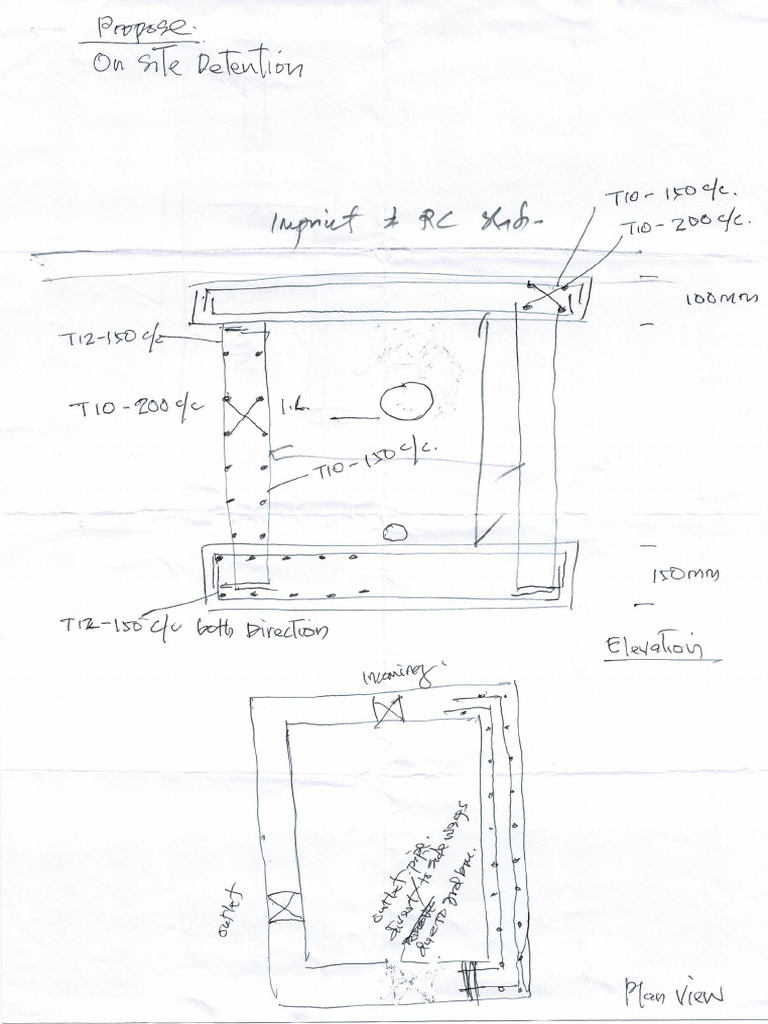 Propose.
On Site Detention
T10-150 c/c.
T10-200 c/c.
Imprint & RC slab.
100mm
T12-150 c/c
T10-200 c/c
I.L.
T10-150 c/c.
150mm
T12-150 c/c both Direction
Elevation
Incoming.
outlet
outlet pipe.
divert to side ways
due to
Plan View